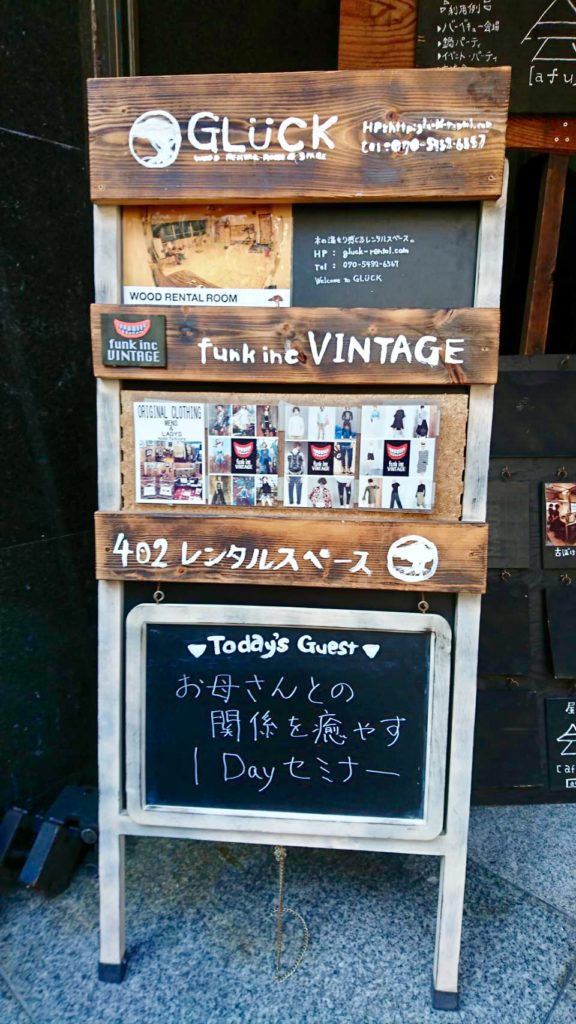 GLÜCK
WOOD RENTAL ROOM & SPACE
木の温もり感じるレンタルスペース。
HP : gluck-rental.com
Tel : 070-5492-6367
Welcome to GLÜCK
WOOD RENTAL ROOM
funk inc
VINTAGE
funk inc VINTAGE
ORIGINAL CLOTHING
MENS
&
LADYS
funk inc
VINTAGE
funk inc
VINTAGE
funk inc
VINTAGE
402 レンタルスペース
Today's Guest
お母さんとの
関係を癒やす
1 Day セミナー
利用例
▶バーベキュー会場
▶鍋パーティ
▶イベント・パーティ
[afu
古ぼけ
屋
[af